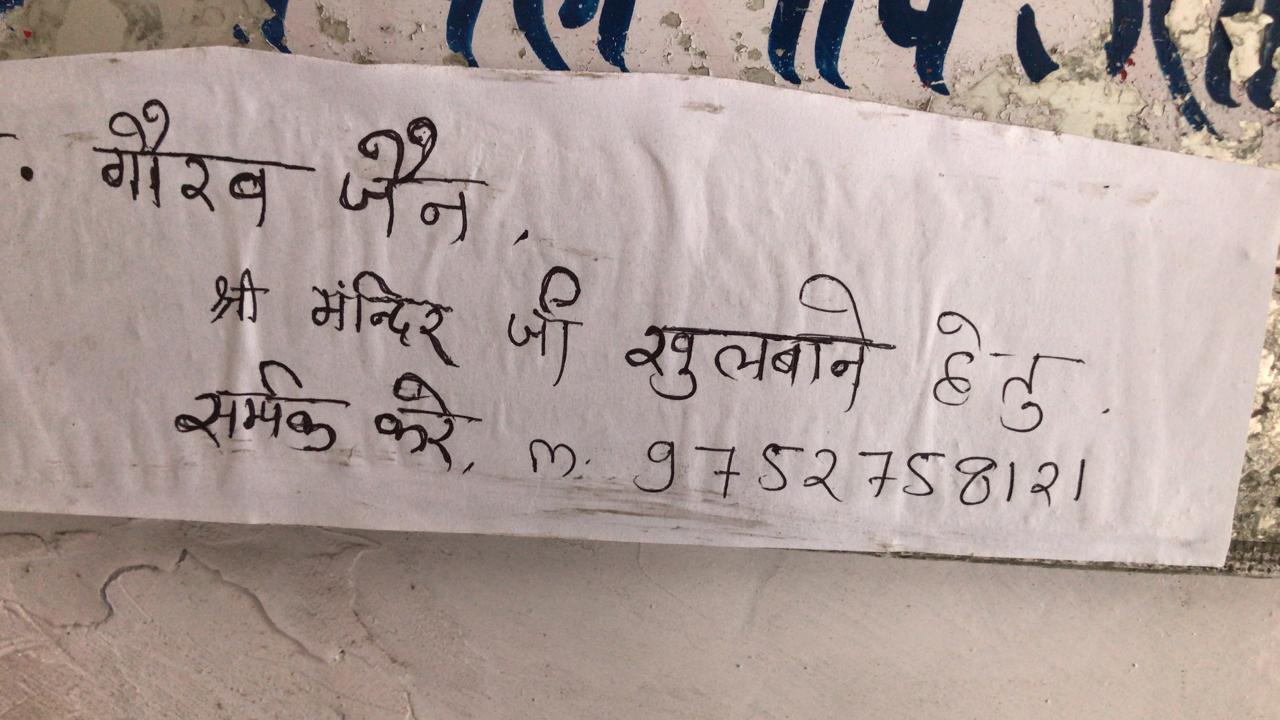 . गौरब जैन,
श्री मंन्दिर जी खुलबाने हेतु.
सर्मपक करे, m. 9752758121